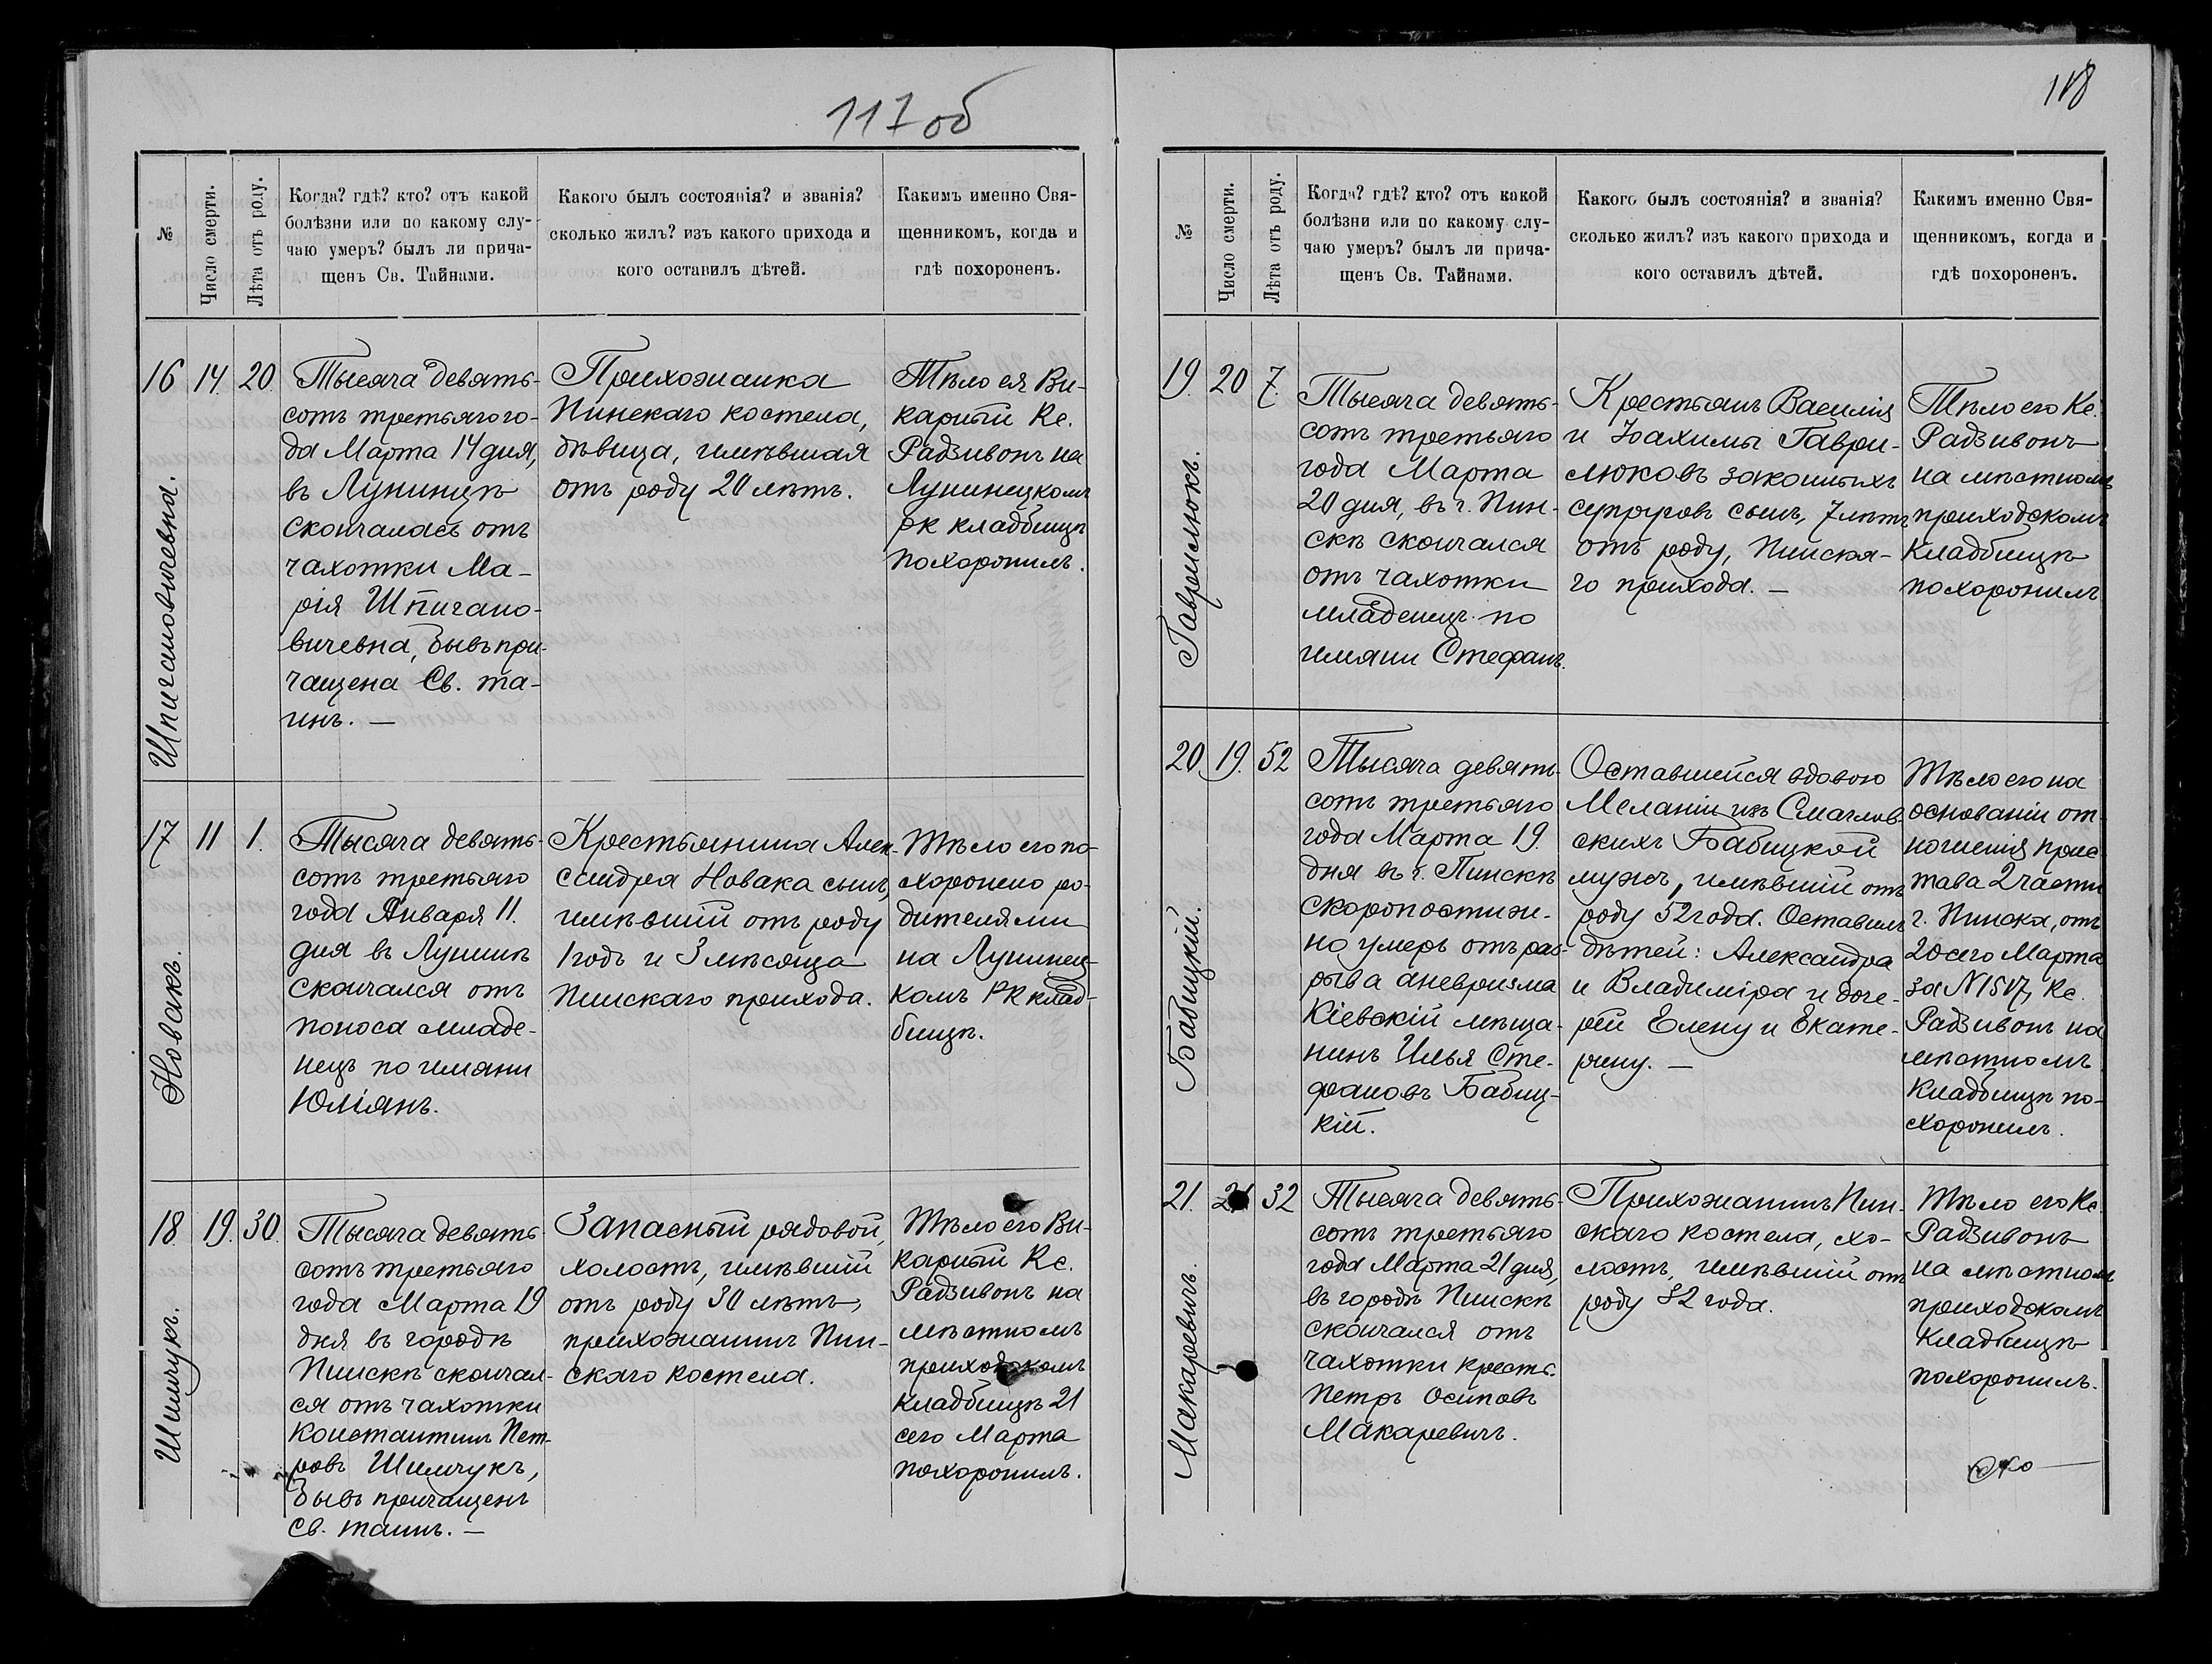 117 об
№
Число смерти.
Лѣта отъ роду.
Когда? гдѣ? кто? отъ какой
болѣзни или по какому слу-
чаю умеръ? былъ ли прича-
щенъ Св. Тайнами.
Какого былъ состоянія? и званія?
сколько жилъ? изъ какого прихода и
кого оставилъ дѣтей.
Какимъ именно Свя-
щенникомъ, когда и
гдѣ похороненъ.
Шпигановичевна.
16
14.
20.
Тысяча девять-
сотъ третьяго го-
да Марта 14 дня,
въ Лунинцѣ
скончалась отъ
чахотки Ма-
рія Шпигано-
вичевна, бывъ при-
чащена Св. та-
инъ. —
Прихожанка
Пинскаго костела,
дѣвица, имѣвшая
отъ роду 20 лѣтъ.
Тѣло ея Ви-
карный Кс.
Радзивонъ на
Лунинецкомъ
рк кладбищѣ
похоронилъ.
Новакъ.
17
11
1.
Тысяча девять-
сотъ третьяго
года Января 11.
дня въ Лунинѣ
скончался отъ
поноса младе-
нецъ по имяни
Юліянъ.
Крестьянина Алек-
сандра Новака сынъ,
имѣвшій отъ роду
1 годъ и 3 мѣсяца
Пинскаго прихода.
Тѣло его по-
хоронено ро-
дителями
на Лунинец-
комъ РК клад-
бищѣ.
Шимчукъ.
18.
19.
30.
Тысяча девять-
сотъ третьяго
года Марта 19
дня въ городѣ
Пинскѣ скончал-
ся отъ чахотки
Константинъ Пет-
ровъ Шимчукъ,
бывъ причащенъ
Св. таинъ. —
Запасный рядовой,
холостъ, имѣвшій
отъ роду 30 лѣтъ,
прихожанинъ Пин-
скаго костела.
Тѣло его Ви-
карный Кс.
Радзивонъ на
мѣстномъ
приходскомъ
кладбищѣ 21
сего Марта
похоронилъ.
118
№
Число смерти.
Лѣта отъ роду.
Когда? гдѣ? кто? отъ какой
болѣзни или по какому слу-
чаю умеръ? былъ ли прича-
щенъ Св. Тайнами.
Какого былъ состоянія? и званія?
сколько жилъ? изъ какого прихода и
кого оставилъ дѣтей.
Какимъ именно Свя-
щенникомъ, когда и
гдѣ похороненъ.
Гаврилюкъ.
19.
20
7.
Тысяча девять-
сотъ третьяго
года Марта
20 дня, въ г. Пин-
скѣ скончался
отъ чахотки
младенецъ по
имяни Стефанъ.
Крестьянъ Василія
и Іоахимы Гаври-
люковъ законныхъ
супруговъ сынъ, 7 лѣтъ
отъ роду, Пинска-
го прихода. —
Тѣло его Кс.
Радзивонъ
на мѣстномъ
приходскомъ
кладбищѣ
похоронилъ
Бабицкій.
20
19.
52
Тысяча девять-
сотъ третьяго
года Марта 19.
дня въ г. Пинскѣ
скоропостиж-
но умеръ отъ раз-
рыва аневризма
Кіевскій мѣща-
нинъ Илья Сте-
фановъ Бабиц-
кій.
Оставшейся вдовою
Меланіи изъ
скихъ Бабицкой
мужъ, имѣвшій отъ
роду 52 года. Оставилъ
дѣтей: Александра
и Владиміра и доче-
рей Елену и Екате-
рину. —
Тѣло его на
основаніи от-
ношенія прис-
тава 2 части
г. Пинска, отъ
20 сего Марта
за N 1517, Кс.
Радзивонъ на
мѣстномъ
кладбищѣ по-
хоронилъ.
Макаревичъ.
21.
21
32
Тысяча девять-
сотъ третьяго
года Марта 21 дня,
въ городѣ Пинскѣ
скончался отъ
чахотки крестъ.
Петръ Осиповъ
Макаревичъ.
Прихожанинъ Пин-
скаго костела, хо-
лостъ, имѣвшій отъ
роду 32 года.
Тѣло его Кс.
Радзивонъ
на мѣстномъ
приходскомъ
кладбищѣ
похоронилъ.